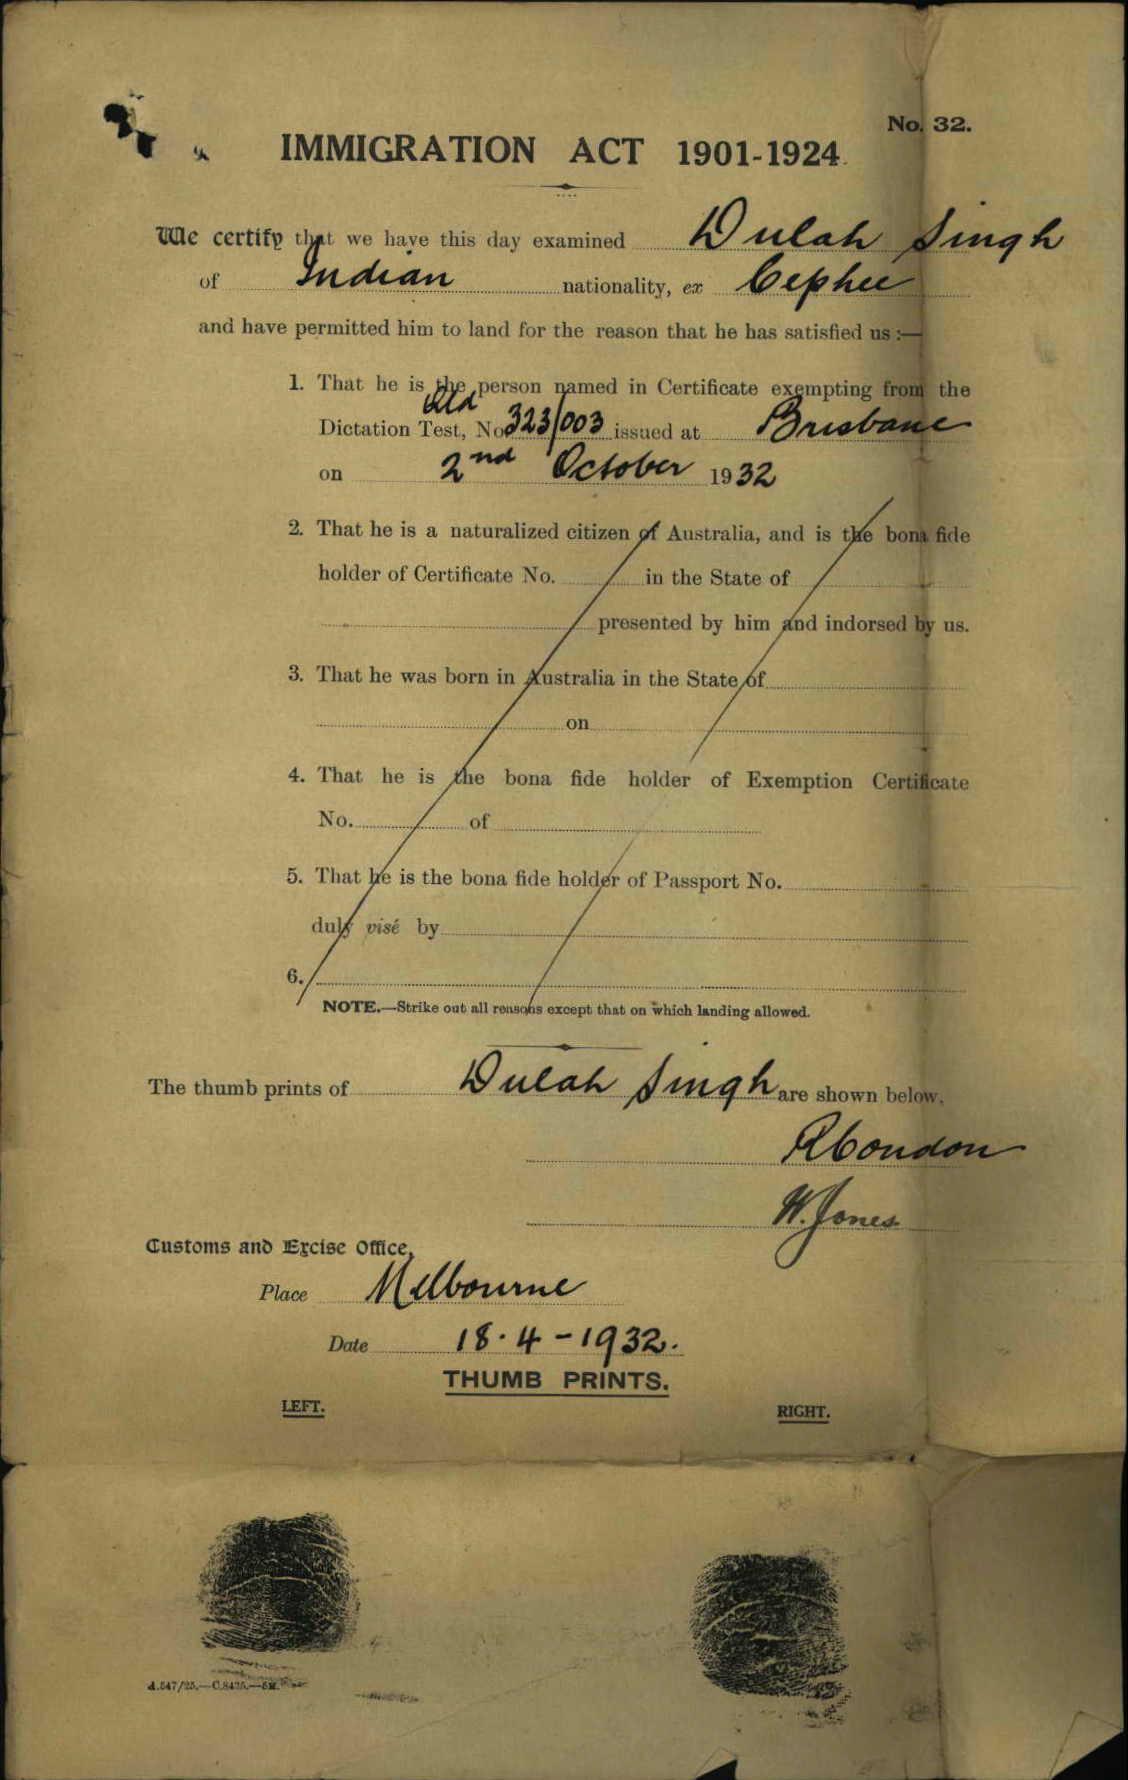 No. 32.
IMMIGRATION ACT 1901-1924.
We certify that we have this day examined Dulah Singh
of Indian nationality, ex Cephee
and have permitted him to land for the reason that he has satisfied us :—
1. That he is the person named in Certificate exempting from the
Qld
Dictation Test, No. 323/003 issued at Brisbane
on 2nd October 1932
2. That he is a naturalized citizen of Australia, and is the bona fide
holder of Certificate No. in the State of
presented by him and indorsed by us.
3. That he was born in Australia in the State of
on
4. That he is the bona fide holder of Exemption Certificate
No. of
5. That he is the bona fide holder of Passport No.
duly visé by
6.
NOTE.—Strike out all reasons except that on which landing allowed.
The thumb prints of Dulah Singh are shown below.
R Condon
W. Jones
Customs and Excise Office,
Place Melbourne
Date 18.4-1932.
THUMB PRINTS.
LEFT. RIGHT.
A.547/25.—C.8435.—5M.